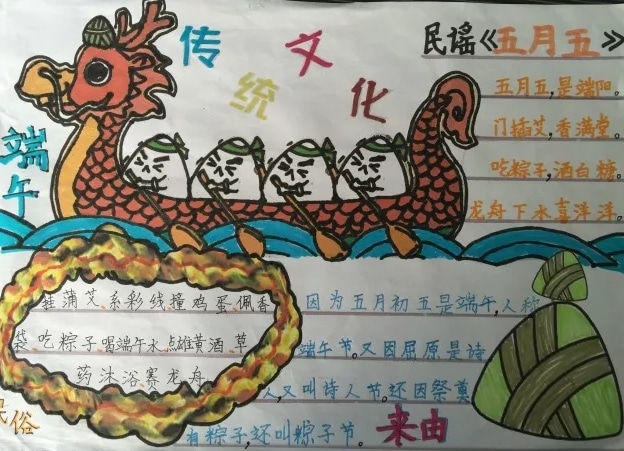 传统文化
端午
民谣《五月五》
五月五,是端阳。
门插艾,香满堂。
吃粽子,洒白糖。
龙舟下水喜洋洋。
挂蒲艾、系彩线、撞鸡蛋、佩香
袋、吃粽子、喝端午水、点雄黄酒、草
药沐浴、赛龙舟
俗
因为五月初五是端午,人称
端午节。又因屈原是诗
人又叫诗人节。还因祭奠
有粽子,还叫粽子节。
来由